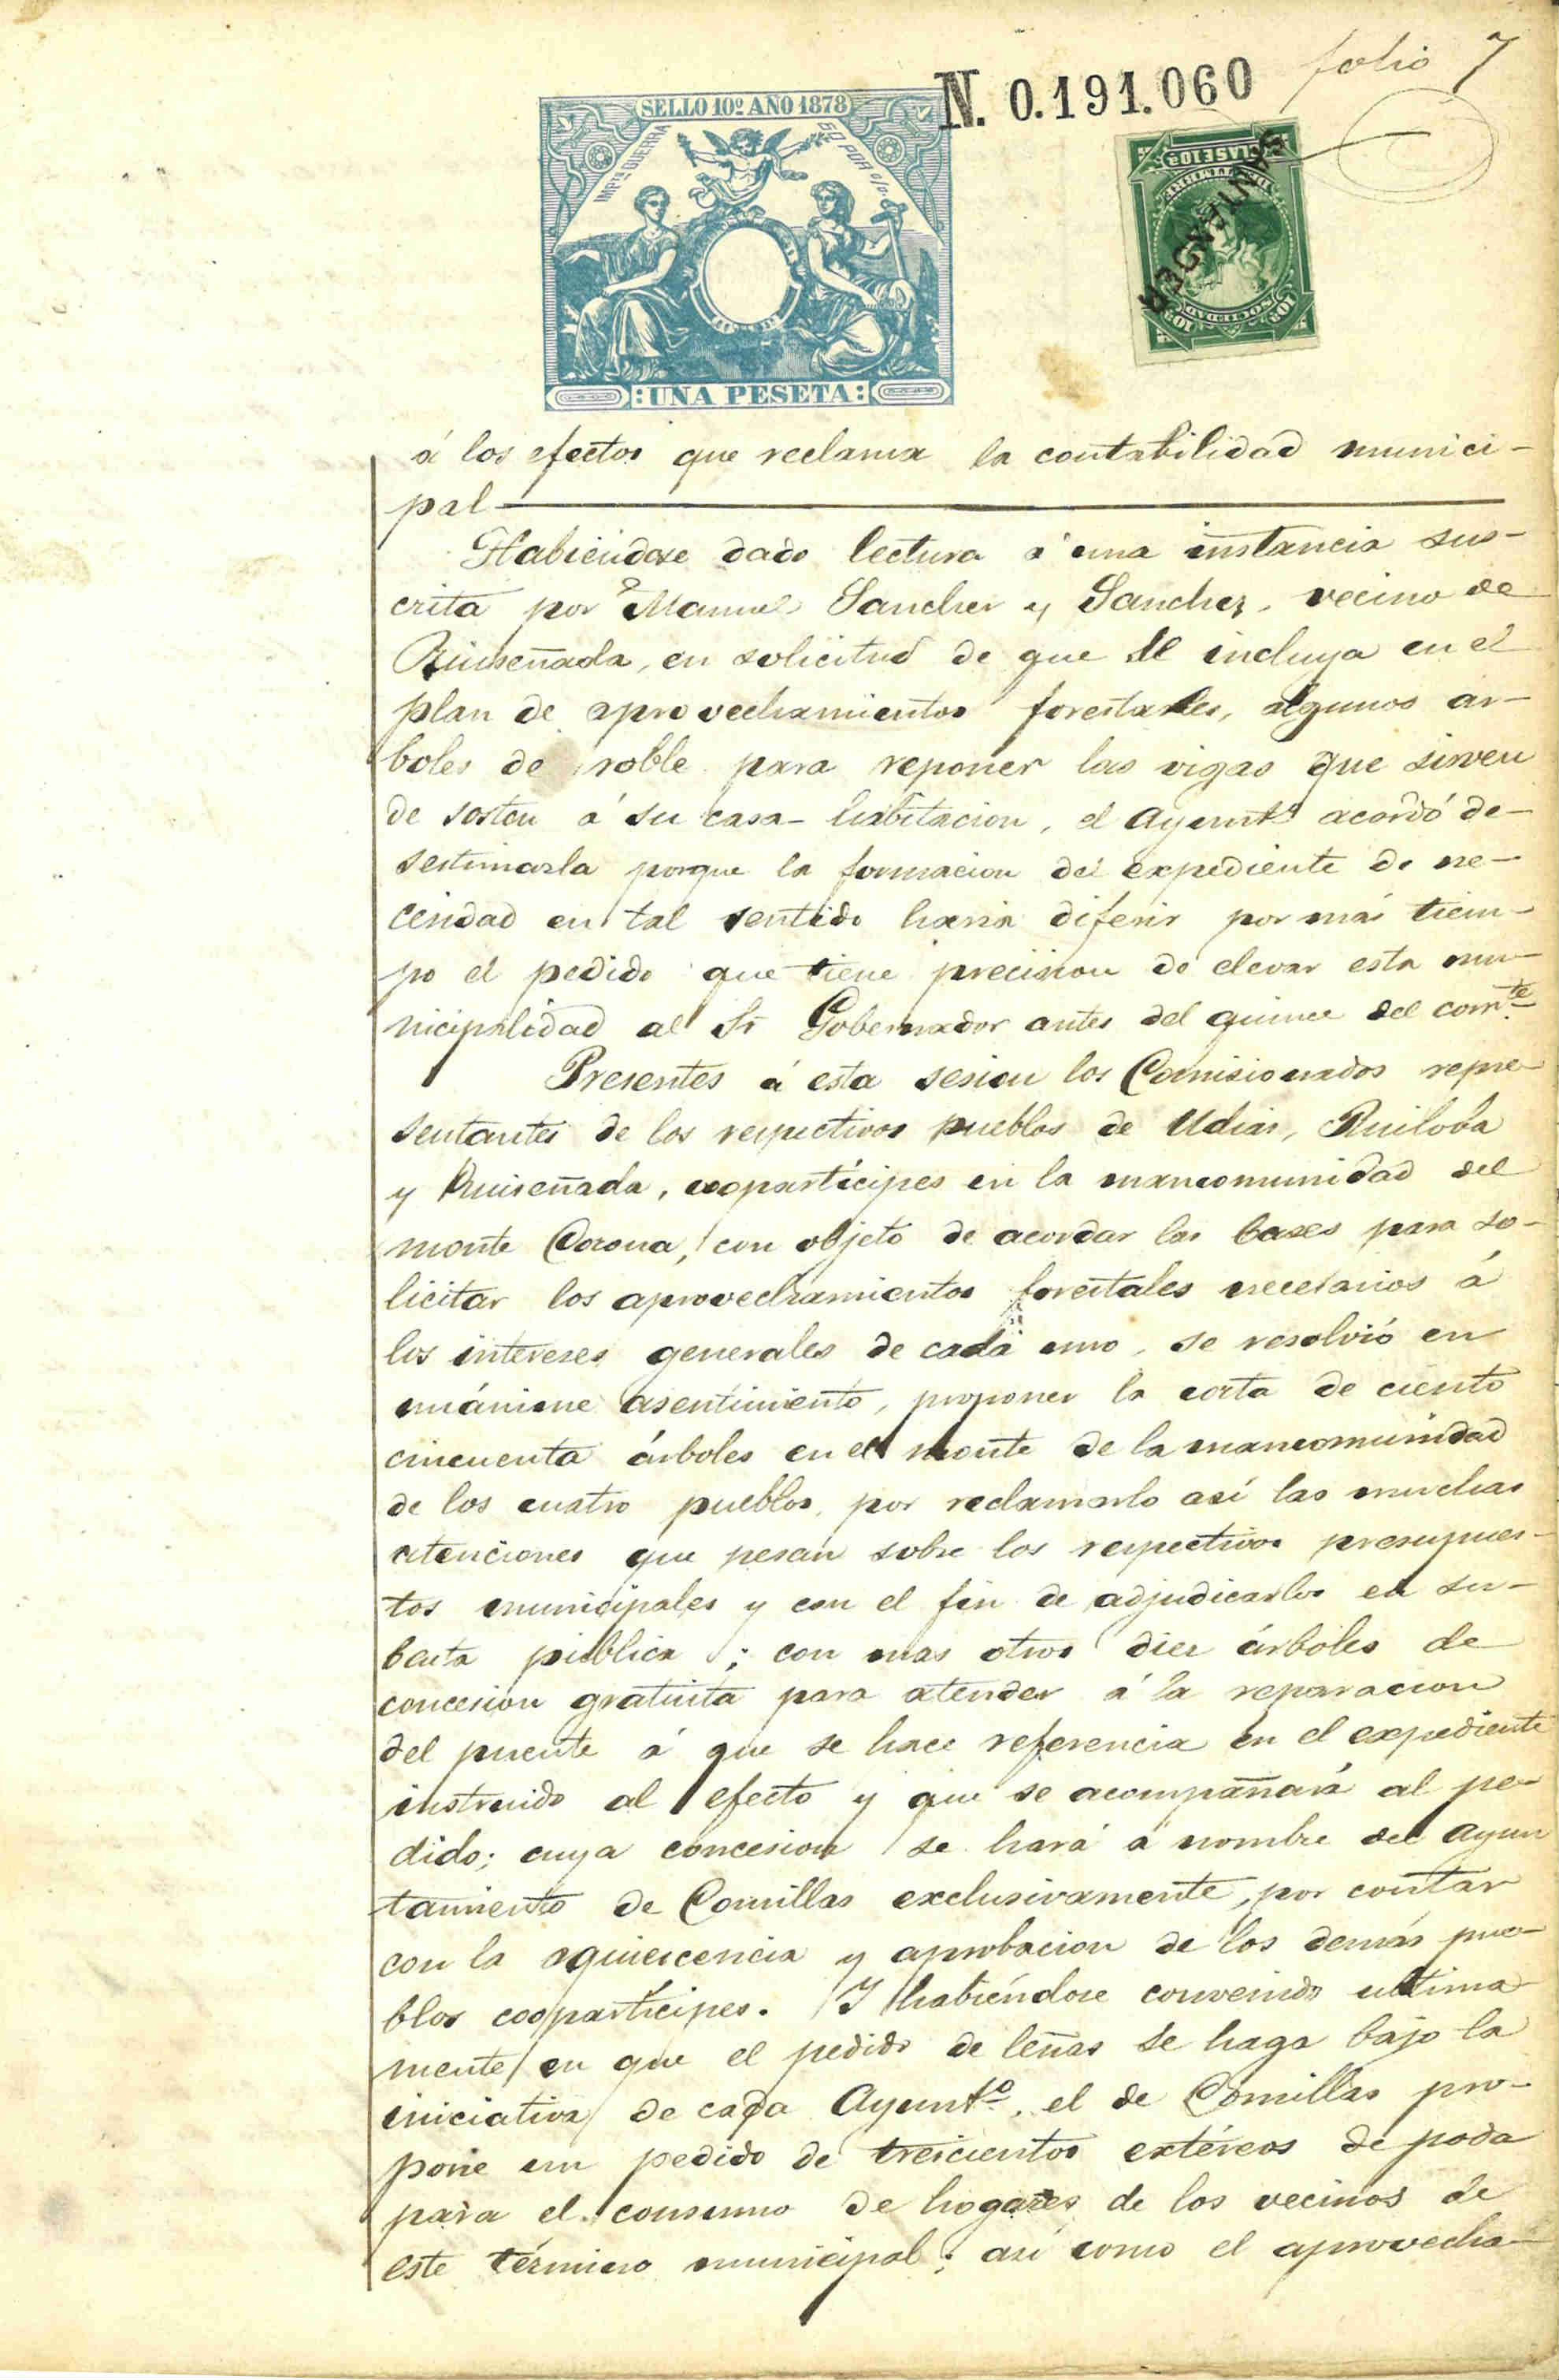 folio 7
N. 0.191.060
SELLO 10º AÑO 1878
IMPTO GUERRA
50 POR 0/0
UNA PESETA
CLASE 10ª
SOCIEDAD
SANTANDER
á los efectos que reclama la contabilidad munici-
pal
Habiendose dado lectura á una instancia sus-
crita por Dº Manuel Sancher y Sanchez, vecino de
Ruiseñada, en solicitud de que se incluya en el
plan de aprovechamientos forestales, algunos ar-
boles de roble para reponer las vigas que sirven
de sosten á su casa-habitacion, el Ayuntº acordó de-
sestimarla porque la formacion del expediente de ne-
cesidad en tal sentido haria diferir por más tiem-
po el pedido que tiene precision de elevar esta mu-
nicipalidad al Sr Gobernador antes del quince del corrte
Presentes á esta sesion los Comisionados repre-
sentantes de los respectivos pueblos de Udias, Ruiloba
y Ruiseñada, coopartícipes en la mancomunidad del
monte Corona, con objeto de acordar las bases para so-
licitar los aprovechamientos forestales necesarios á
los intereses generales de cada uno, se resolvió en
unánime asentimiento, proponer la corta de ciento
cincuenta árboles en el monte de la mancomunidad
de los cuatro pueblos, por reclamarlo así las muchas
atenciones que pesan sobre los respectivos presupues-
tos municipales y con el fin de adjudicarlos en su-
basta pública; con mas otros diez árboles de
concesion gratuita para atender á la reparacion
del puente á que se hace referencia en el expediente
instruido al efecto y que se acompañará al pe-
dido; cuya concesion se hará á nombre del Ayun
tamiento de Comillas exclusivamente, por contar
con la aquiescencia y aprobacion de los demás pue-
blos coopartícipes. Y habiéndose convenido ultima-
mente en que el pedido de leñas se haga bajo la
iniciativa de cada Ayuntº, el de Comillas pro-
pone un pedido de trescientos extéreos de poda
para el consumo de hogares de los vecinos de
este término municipal; así como el aprovecha-